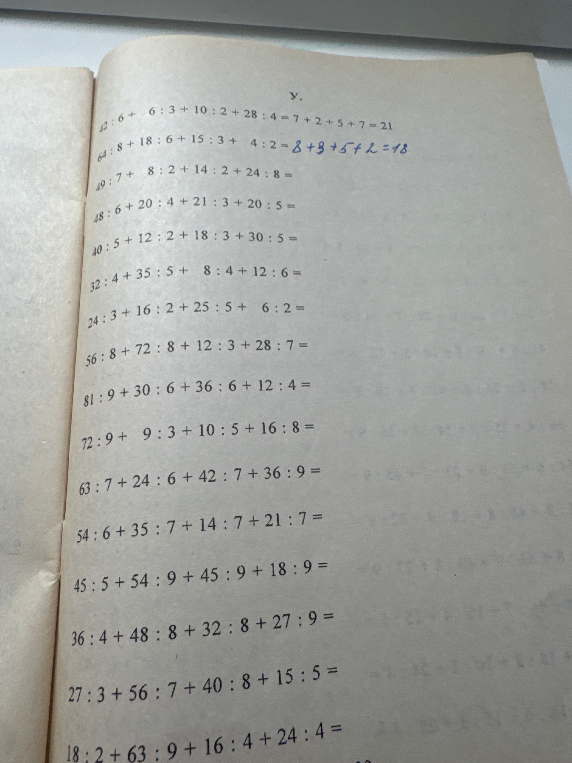 У.
42 : 6 + 6 : 3 + 10 : 2 + 28 : 4 = 7 + 2 + 5 + 7 = 21
64 : 8 + 18 : 6 + 15 : 3 + 4 : 2 = 8 + 3 + 5 + 2 = 18
49 : 7 + 8 : 2 + 14 : 2 + 24 : 8 =
48 : 6 + 20 : 4 + 21 : 3 + 20 : 5 =
40 : 5 + 12 : 2 + 18 : 3 + 30 : 5 =
32 : 4 + 35 : 5 + 8 : 4 + 12 : 6 =
24 : 3 + 16 : 2 + 25 : 5 + 6 : 2 =
56 : 8 + 72 : 8 + 12 : 3 + 28 : 7 =
81 : 9 + 30 : 6 + 36 : 6 + 12 : 4 =
72 : 9 + 9 : 3 + 10 : 5 + 16 : 8 =
63 : 7 + 24 : 6 + 42 : 7 + 36 : 9 =
54 : 6 + 35 : 7 + 14 : 7 + 21 : 7 =
45 : 5 + 54 : 9 + 45 : 9 + 18 : 9 =
36 : 4 + 48 : 8 + 32 : 8 + 27 : 9 =
27 : 3 + 56 : 7 + 40 : 8 + 15 : 5 =
18 : 2 + 63 : 9 + 16 : 4 + 24 : 4 =